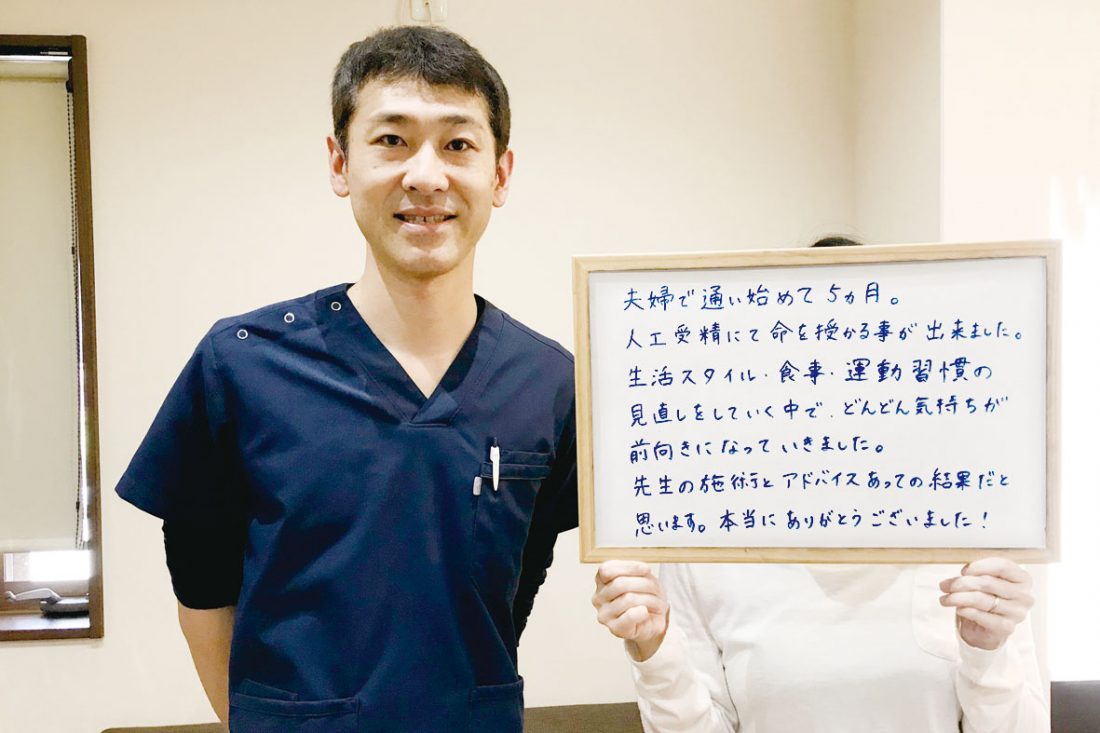 夫婦で通い始めて5ヵ月。
人工受精にて命を授かる事が出来ました。
生活スタイル・食事・運動習慣の
見直しをしていく中で、どんどん気持ちが
前向きになっていきました。
先生の施術とアドバイスあっての結果だと
思います。本当にありがとうございました！